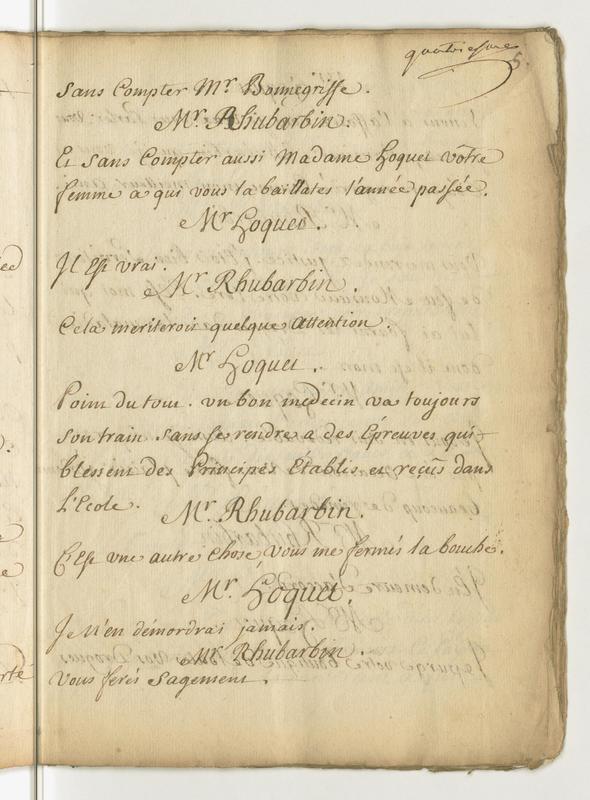 quatriesme 5.
sans Compter Mr. Bonnegriffe.
Mr. Rhubarbin.
Et sans Compter aussi Madame Hoquet vôtre
femme a qui vous la baillates l'année passée.
Mr Hoquet.
Il Est vrai.
Mr Rhubarbin.
Cela meriteroit quelque Attention.
Mr Hoquet.
Point du tout. un bon medecin va toujours
son train sans se rendre a des Epreuves qui
blessent des Principes Etablis et reçûs dans
L'Ecole.
Mr. Rhubarbin.
C'Est une autre chose, vous me fermés la bouche.
Mr. Hoquet.
Je N'en démordrai jamais.
Mr. Rhubarbin.
Vous ferés sagement.